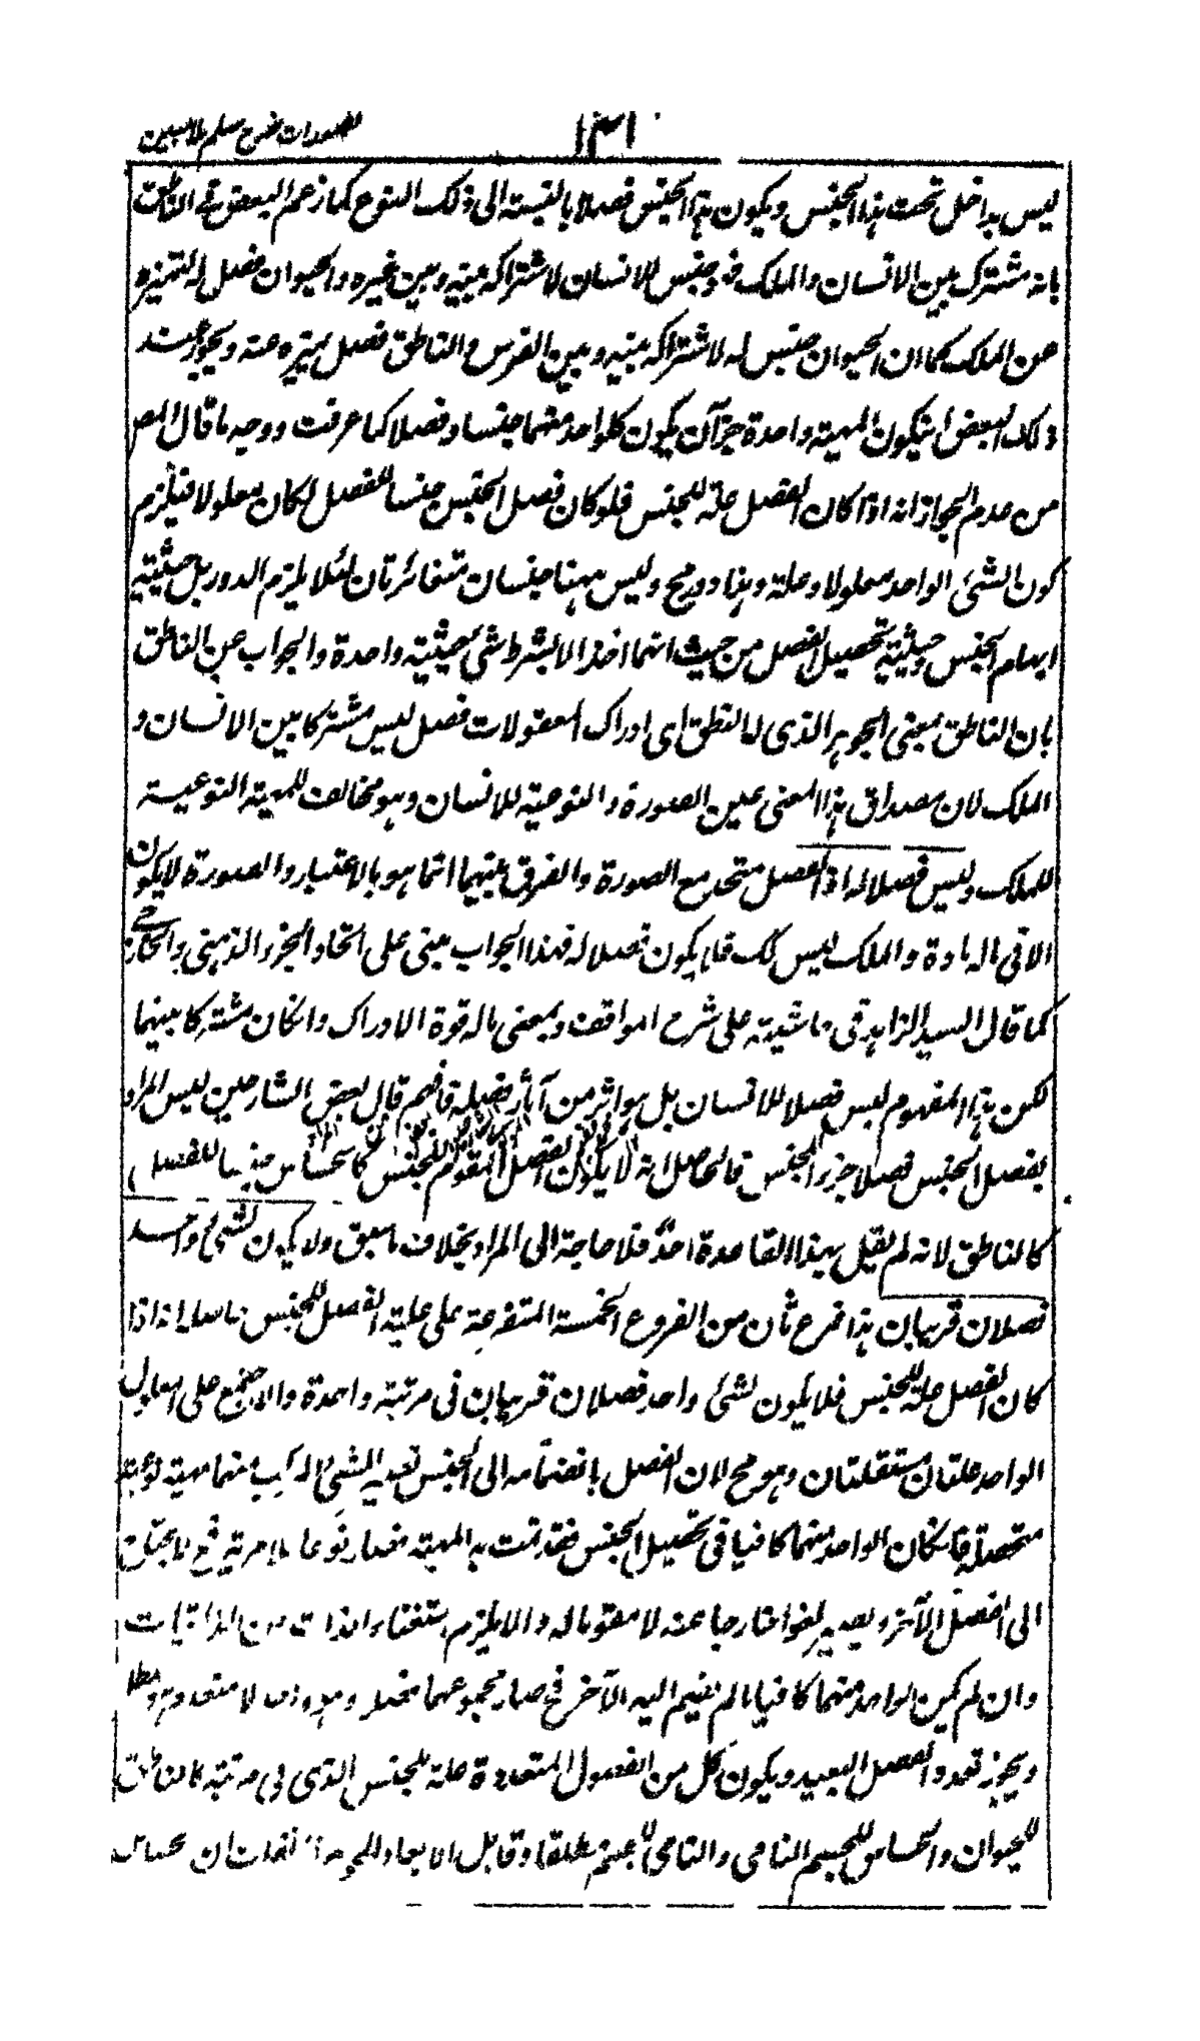 تصورات شرح سلم ملا مبين
١٣١
ليس بداخل تحت هذا الجنس ويكون هذا الجنس فصلا بالنسبة الى ذلك النوع كما زعم البعض فى الناطق
بانه مشترك بين الانسان والملك فهو جنس للانسان لاشتراكه بينه وبين غيره والحيوان فصل له لتميزه
عن الملك كما ان الحيوان جنس له لاشتراكه بينه وبين الفرس والناطق فصل يميزه عنه ويجوز عند
ذلك البعض ان يكون لمهية واحدة جزآن يكون كلواحد منهما جنسا وفصلا كما عرفت ووجه ما قال المص
من عدم الجواز انه اذا كان الفصل علة للجنس فلو كان فصل الجنس جنسا للفصل لكان معلولا فيلزم
كون الشئ الواحد معلولا وعلة وهذا دور مح وليس ههنا جنسان متغائرتان لئلا يلزم الدور بل حيثية
ابهام الجنس وحيثية تحصيل الفصل من حيث انهما اخذ الا بشرط شئ حيثية واحدة والجواب عن الناطق
بان الناطق بمعنى الجوهر الذى له النطق اى ادراك المعقولات فصل ليس مشتركا بين الانسان و
الملك لان مصداق هذا المعنى عين الصورة والنوعية للانسان وهو مخالف للمهية النوعية
للملك وليس فصلا له اذ الفصل متحد مع الصورة والفرق بينهما انما هو بالاعتبار والصورة لا يكون
الا فى المادة والملك ليس كك فلا يكون فصلا له فهذا الجواب مبنى على اتحاد الجزء الذهنى والخارجى
كما قال السيد الزاهد فى حاشيته على شرح المواقف وبمعنى ما له قوة الادراك وان كان مشتركا بينهما
لكن هذا المفهوم ليس فصلا للانسان بل هو اثر من آثار فصله فافهم قال بعض الشارحين ليس المراد
بفصل الجنس فصلا جزء الجنس فالحاصل انه لا يكون الفصل المقوم للجنس كالحساس جنسا للفصل
كالناطق لانه لم يقل بهذا القاعدة احد فلا حاجة الى المراد بخلاف ما سبق ولا يكون لشئ واحد
فصلان قريبان هذا فرع ثان من الفروع الخمسة المتفرعة على علية الفصل للجنس حاصله انه اذا
كان الفصل علة للجنس فلا يكون لشئ واحد فصلان قريبان فى مرتبة واحدة والا اجتمع على المعلول
الواحد علتان مستقلتان وهو مح لان الفصل بانضمامه الى الجنس يصير الشئ المركب منهما مهية نوعية
متحصلة فان كان الواحد منهما كافيا فى تحصيل الجنس فقد تمت به المهية فصار نوعا بلا مرية فح لا يحتاج
الى الفصل الآخر ويصير لغوا خارجا عنه لا مقوما له والا يلزم استغناء الذات من الذاتيات
وان لم يكن الواحد منهما كافيا ما لم ينضم اليه الآخر فح صار مجموعهما فصلا وهو واحد لا متعدد وهو مطلا
ويجوز تعدد الفصل البعيد ويكون كل من الفصول المتعددة علة للجنس الذى فى مرتبته كالناطق
للحيوان والحساس للجسم النامى والنامى للجسم مطلقا وقابل الابعاد للجوهر